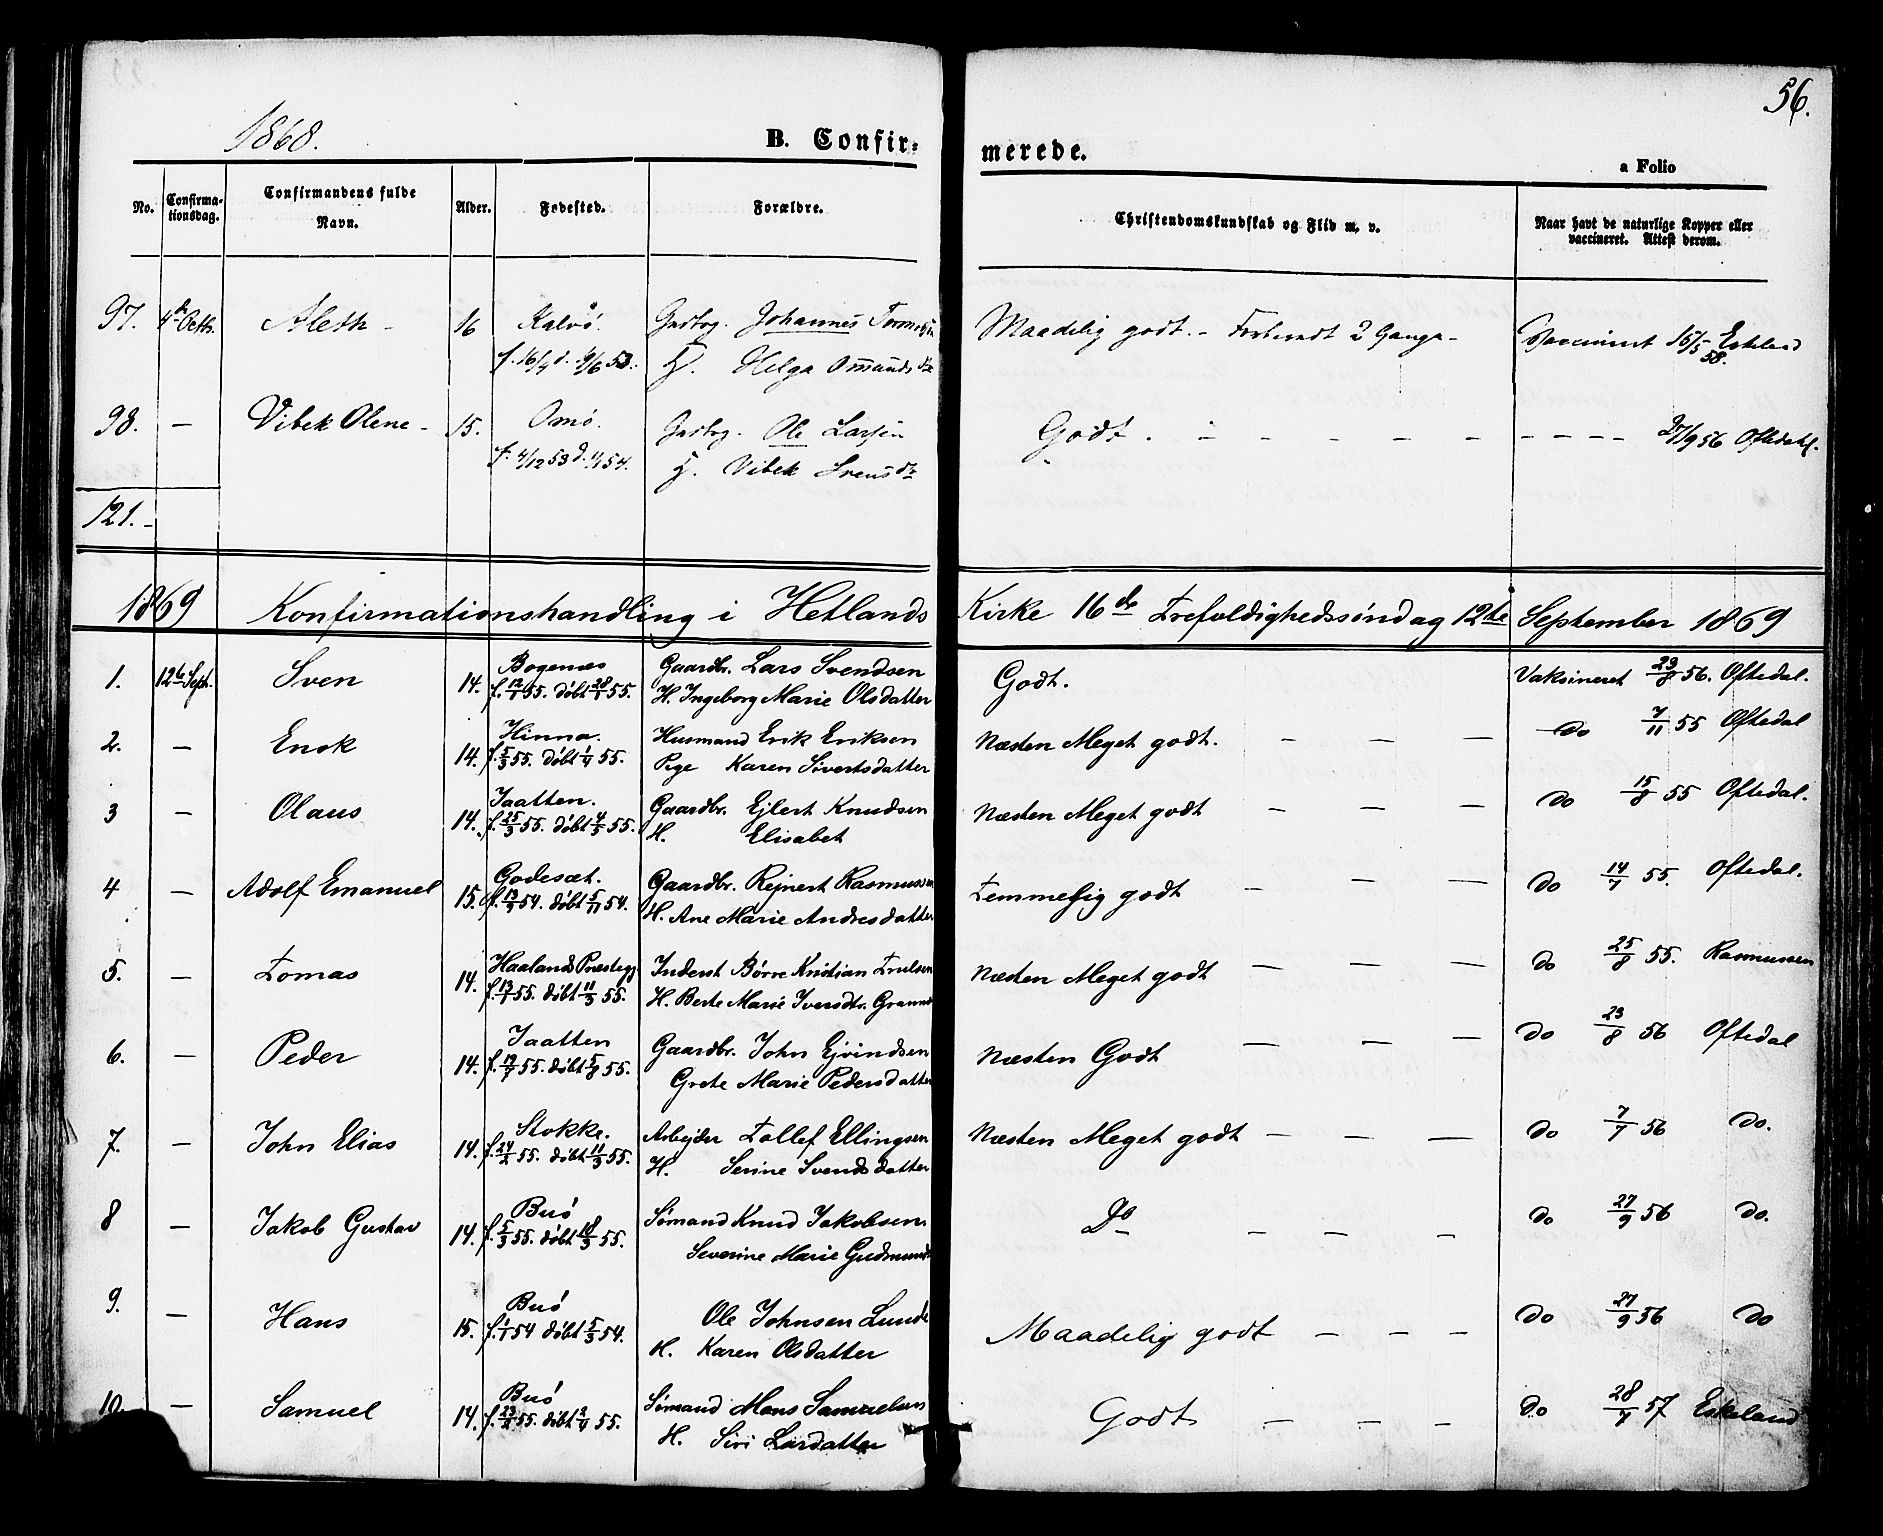 56.
1868.
B. Confir-
merede.
a Folio
No.
Confirma-
tionsdag.
Confirmandens fulde
Navn.
Alder.
Fødested.
Forældre.
Christendomskundskab og Flid m. v.
Naar havt de naturlige Kopper eller
vaccineret. Attest derom.
97. 4de Octbr. Aleth - 16 Kalvø. Johannes Maadelig godt. - 2 Gange - Vaccineret 15/5 58. Eskeland
f. 16/4 d. 9/6 53. H. Helga Omunds dtr
98. - Vibek Olene - 15. Omø. Ole Larsen Godt. - - - - - - - - - 27/9 56 Oftedahl.
f. 4/12 53 d. 1/1 54. H. Vibek Svensdtr
121. -
1869 Konfirmationshandling i Hetlands Kirke 16de Trefoldighedssøndag 12te September 1869
1. 12te Sept. Sven 14. Bogenæs Gaardbr. Lars Svendsen Godt. Vaksineret 23/8 56. Oftedal.
f. 12/1 55. døbt 28/1 55. H. Ingeborg Marie Olsdatter
2. - Enok 14. Hinna. Husmand Erik Eriksen Næsten Meget godt. - - - do 7/11 55 Oftedal
f. 5/3 55. døbt 1/4 55. Pige Karen Sivertsdatter
3 - Olaus 14. Jaatten. Gaardbr. Ejlert Knudsen Næsten Meget godt - - - do 15/8 55 Oftedal.
f. 25/3 55. døbt 4/5 55. H. Elisabet
4 - Adolf Emanuel 15. Godesæt. Gaardbr. Rejnert Rasmussen Temmelig godt - - - do 14/7 55. Oftedal.
54. døbt 5/11 54. H. Ane Marie Andresdatter
5. - Tomas 14. Haalands Præstegj Inderst Børre Kristian Trulsen Næsten Meget godt - - - do 25/8 55. Rasmussen
f. 13/1 55. døbt 11/3 55. H. Berte Marie Iversdtr.
6. - Peder 14. Jaatten Gaardbr. John Ejvindsen Næsten Godt - - - do 23/8 56 Oftedal
f. 19/7 55. døbt 5/8 55. Grete Marie Pedersdatter
7. - John Elias 14. Stokke. Arbejder Tollef Ellingsen Næsten Meget godt - - - do 7/7 56 do.
f. 24/2 55. døbt 11/3 55. H. Serine Svendsdatter
8 - Jakob Gustav 14. Buø Sømand Knud Jakobsen Do - - - do 27/9 56 do.
f. 5/3 55. døbt 18/3 55. Severine Marie Gudmunds
9. - Hans 15. Buø Ole Johnsen Lunde Maadelig godt - - - do 27/9 56 do
f. 1/1 54 døbt 5/3 54. H. Karen Olsdatter
10. - Samuel 14. Buø Sømand Mons Samuelsen Godt - - - do 28/7 57 Eskeland
f. 23/2 55. døbt 2/4 55. H. Siri Larsdatter